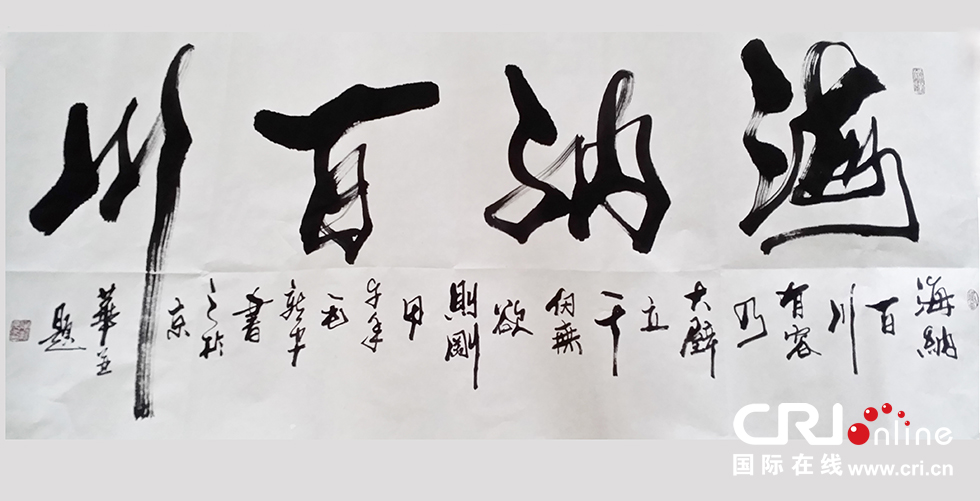 海納百川
海納
百
川
有容
乃
大壁
立
千
仞無
欲
則剛
甲
午年
毛
新
書
之於
京
華並
題
CRI online
国际在线 www.cri.cn